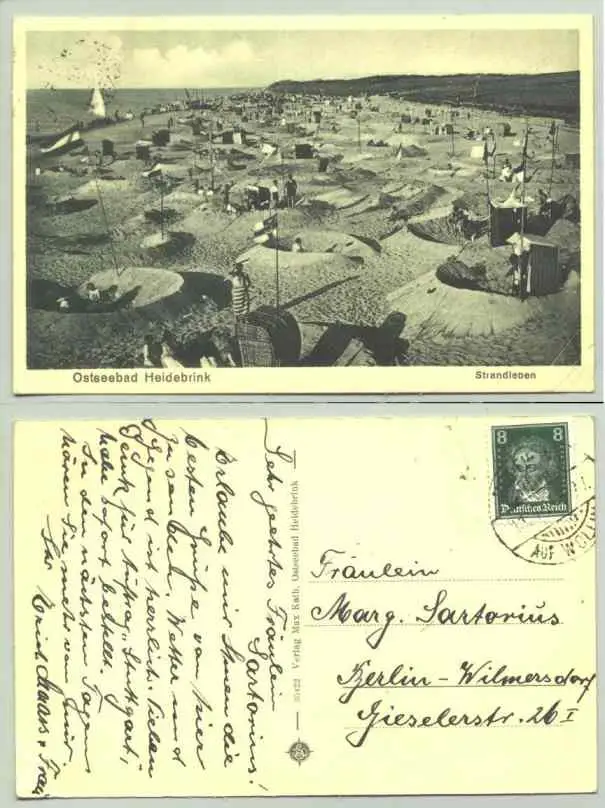 Ostseebad Heidebrink
Strandleben
Sehr geehrtes Fräulein
Sartorius!
Erlaube mir Ihnen die
besten Grüße von hier
zu senden. Wetter und
Gegend ist herrlich. Vielen
Dank für
habe sofort bestellt.
In den nächsten Tagen
hören Sie mehr von mir.
Ihr Erich Maass u. Frau
Verlag Max Kath, Ostseebad Heidebrink
8 8
Deutsches Reich
AUF WOLLIN
Fräulein
Marg. Sartorius
Berlin-Wilmersdorf
Gieselerstr. 26 I